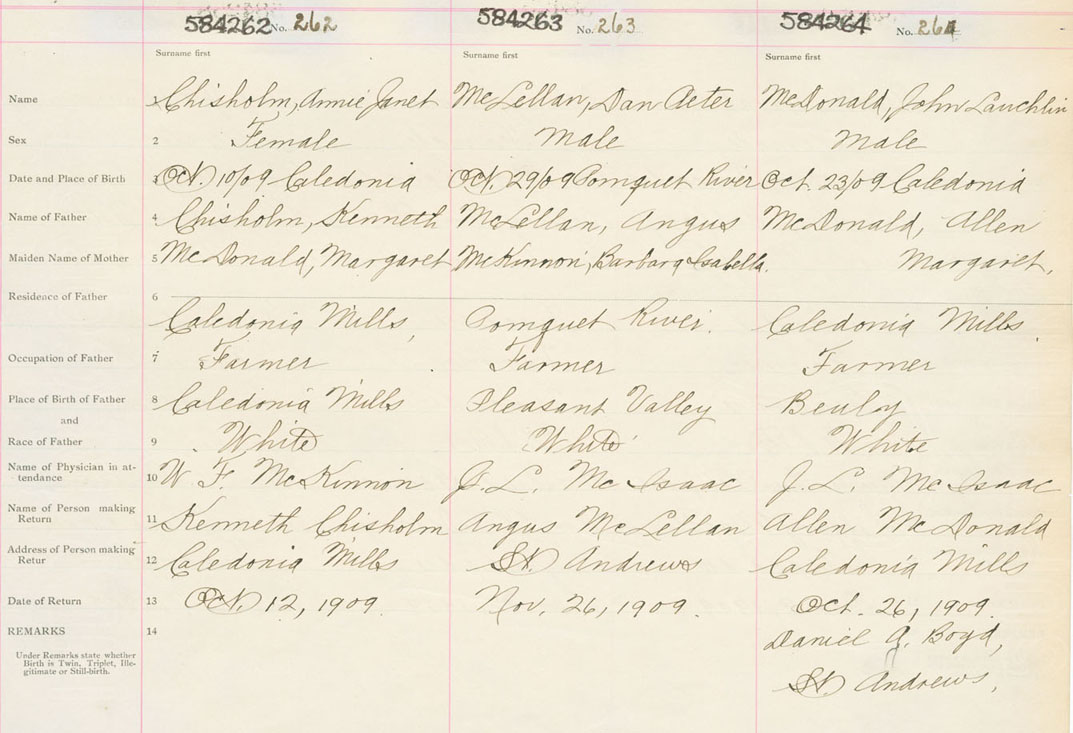 584262 No. 262 584263 No. 263 584264 No. 264
Surname first Surname first Surname first
Name 1 Chisholm, Annie Janet McLellan, Dan Peter McDonald, John Lauchlin
Sex 2 Female Male Male
Date and Place of Birth 3 Oct. 10/09 Caledonia Oct. 29/09 Pomquet River Oct. 23/09 Caledonia
Name of Father 4 Chisholm, Kenneth McLellan, Angus McDonald, Allen
Maiden Name of Mother 5 McDonald, Margaret McKinnon, Barbara Isabella. Margaret,
Residence of Father 6
Caledonia Mills, Pomquet River. Caledonia Mills
Occupation of Father 7 Farmer Farmer Farmer
Place of Birth of Father 8 Caledonia Mills Pleasant Valley Beuly
and
Race of Father 9 White White White
Name of Physician in at-
tendance 10 W F. McKinnon J. L. McIsaac J. L. McIsaac
Name of Person making
Return 11 Kenneth Chisholm Angus McLellan Allen McDonald
Address of Person making
Retur 12 Caledonia Mills St. Andrews Caledonia Mills
Date of Return 13 Oct. 12, 1909. Nov. 26, 1909. Oct. 26, 1909.
REMARKS 14 Daniel A. Boyd,
Under Remarks state whether
Birth is Twin, Triplet, Ille-
gitimate or Still-birth.
St. Andrews,